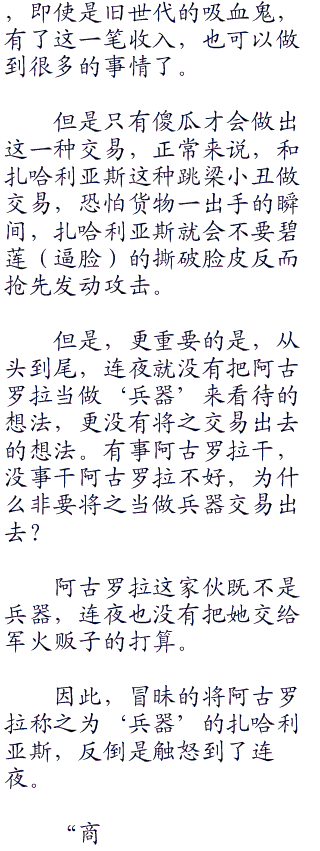 ，即使是旧世代的吸血鬼，
有了这一笔收入，也可以做
到很多的事情了。
但是只有傻瓜才会做出
这一种交易，正常来说，和
扎哈利亚斯这种跳梁小丑做
交易，恐怕货物一出手的瞬
间，扎哈利亚斯就会不要碧
莲（逼脸）的撕破脸皮反而
抢先发动攻击。
但是，更重要的是，从
头到尾，连夜就没有把阿古
罗拉当做‘兵器’来看待的
想法，更没有将之交易出去
的想法。有事阿古罗拉干，
没事干阿古罗拉不好，为什
么非要将之当做兵器交易出
去？
阿古罗拉这家伙既不是
兵器，连夜也没有把她交给
军火贩子的打算。
因此，冒昧的将阿古罗
拉称之为‘兵器’的扎哈利
亚斯，反倒是触怒到了连
夜。
“商